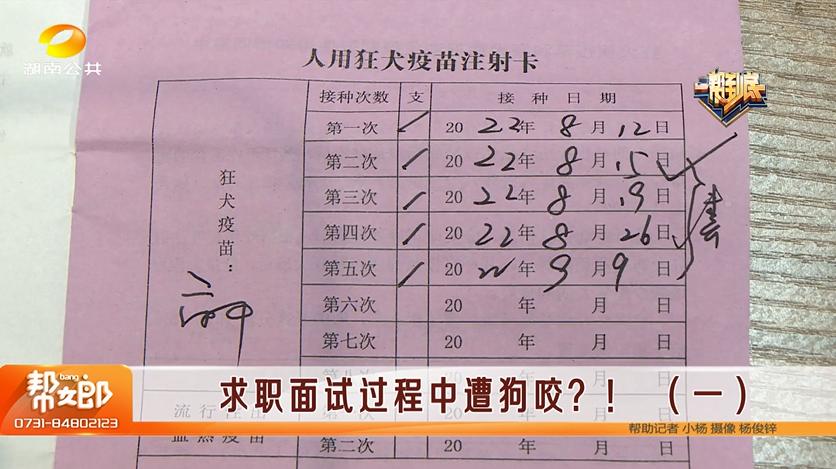 湖南公共
一帮到底
人用狂犬疫苗注射卡
接种次数 支 接种日期
狂犬疫苗：
第一次 / 2022年8月12日
第二次 / 2022年8月15日
第三次 / 2022年8月19日
第四次 / 2022年8月26日
第五次 / 20 年9月9日
第六次 20 年 月 日
第七次 20 年 月 日
第八次
流行性出
血热疫苗
第二次
帮女郎
bang
0731-84802123
求职面试过程中遭狗咬？！（一）
帮助记者 小杨 摄像 杨俊锌